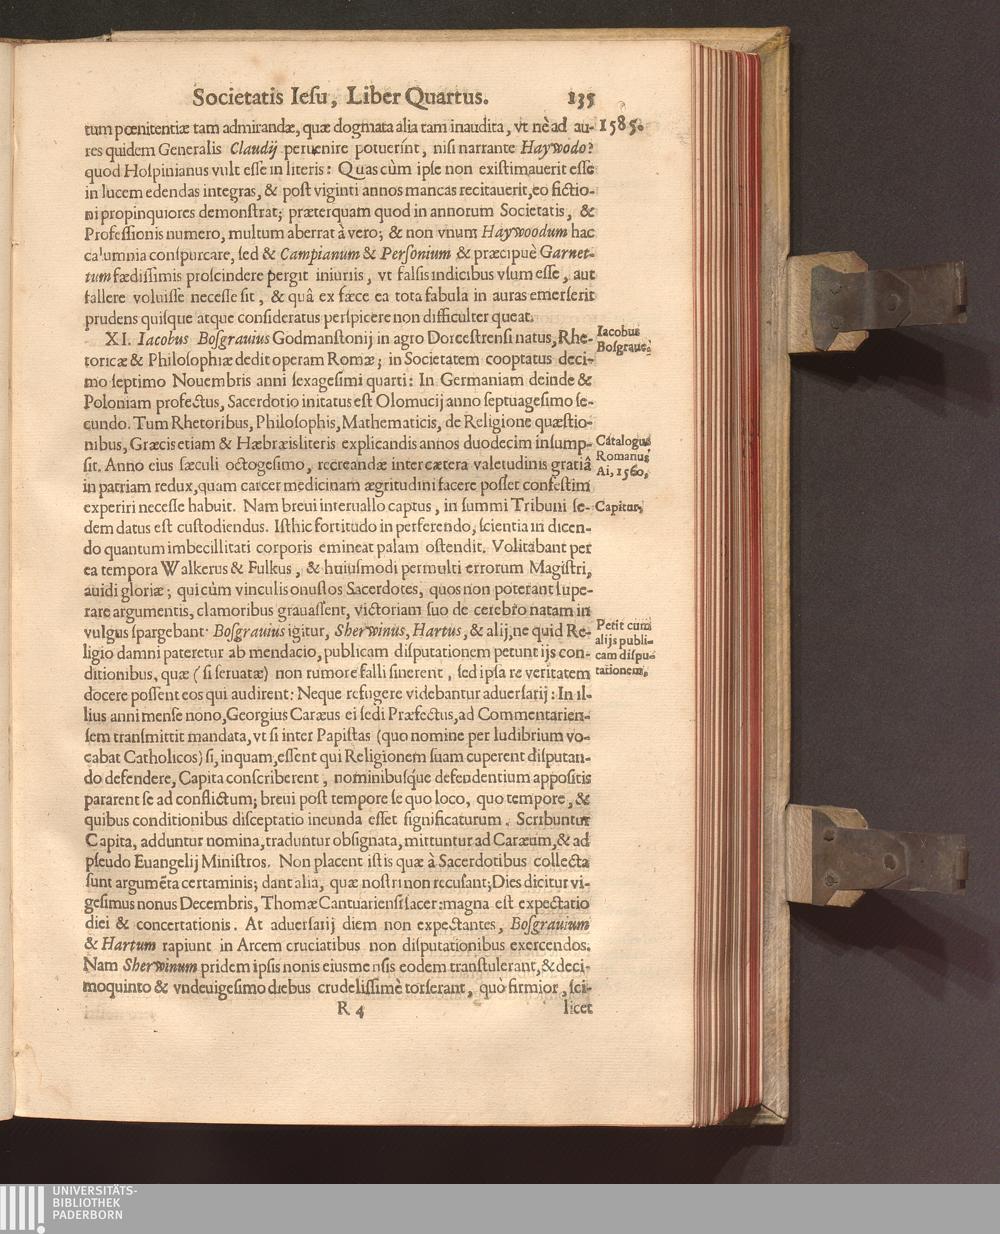 Societatis Iesu, Liber Quartus. 135
tum pœnitentiæ tam admirandæ, quæ dogmata alia tam inaudita, vt nè ad au- 1585.
res quidem Generalis Claudij peruenire potuerint, nisi narrante Haywodo?
quod Hospinianus vult esse in literis: Quas cùm ipse non existimauerit esse
in lucem edendas integras, & post viginti annos mancas recitauerit, eo fictio-
ni propinquiores demonstrat; præterquam quod in annorum Societatis, &
Professionis numero, multum aberrat à vero; & non vnum Haywoodum hac
calumnia conspurcare, sed & Campianum & Personium & præcipuè Garnet-
tum fœdissimis proscindere pergit iniuriis, vt falsis indicibus vsum esse, aut
fallere voluisse necesse sit, & quâ ex fæce ea tota fabula in auras emerserit
prudens quisque atque consideratus perspicere non difficulter queat.
XI. Iacobus Bosgrauius Godmanstonij in agro Dorcestrensi natus, Rhe-
toricæ & Philosophiæ dedit operam Romæ; in Societatem cooptatus deci-
mo septimo Nouembris anni sexagesimi quarti: In Germaniam deinde &
Poloniam profectus, Sacerdotio initatus est Olomucij anno septuagesimo se-
cundo. Tum Rhetoribus, Philosophis, Mathematicis, de Religione quæstio-
nibus, Græcis etiam & Hæbræis literis explicandis annos duodecim insump-
sit. Anno eius sæculi octogesimo, recreandæ inter cætera valetudinis gratiâ
in patriam redux, quam carcer medicinam ægritudini facere posset confestim
experiri necesse habuit. Nam breui interuallo captus, in summi Tribuni se-
dem datus est custodiendus. Isthic fortitudo in perferendo, scientia in dicen-
do quantum imbecillitati corporis emineat palam ostendit. Volitabant per
ea tempora Walkerus & Fulkus, & huiusmodi permulti errorum Magistri,
auidi gloriæ; qui cùm vinculis onustos Sacerdotes, quos non poterant supe-
rare argumentis, clamoribus grauassent, victoriam suo de cerebro natam in
vulgus spargebant. Bosgrauius igitur, Sherwinus, Hartus, & alij, ne quid Re-
ligio damni pateretur ab mendacio, publicam disputationem petunt ijs con-
ditionibus, quæ (si seruatæ) non rumore falli sinerent, sed ipsa re veritatem
docere possent eos qui audirent: Neque refugere videbantur aduersarij: In il-
lius anni mense nono, Georgius Caræus ei sedi Præfectus, ad Commentarien-
sem transmittit mandata, vt si inter Papistas (quo nomine per ludibrium vo-
cabat Catholicos) si, inquam, essent qui Religionem suam cuperent disputan-
do defendere, Capita conscriberent, nominibusque defendentium appositis
pararent se ad conflictum; breui post tempore se quo loco, quo tempore, &
quibus conditionibus disceptatio ineunda esset significaturum. Scribuntur
Capita, adduntur nomina, traduntur obsignata, mittuntur ad Caræum, & ad
pseudo Euangelij Ministros. Non placent istis quæ à Sacerdotibus collecta
sunt argumēta certaminis; dant alia, quæ nostri non recusant; Dies dicitur vi-
gesimus nonus Decembris, Thomæ Cantuariensi sacer: magna est expectatio
diei & concertationis. At aduersarij diem non expectantes, Bosgrauium
& Hartum rapiunt in Arcem cruciatibus non disputationibus exercendos.
Nam Sherwinum pridem ipsis nonis eiusmensis eodem transtulerant, & deci-
moquinto & vndeuigesimo diebus crudelissimè torserant, quò firmior, sci-
R 4 licet
Iacobus
Bosgraue.
Catalogus
Romanus
Ai, 1560.
Capitur.
Petit cum
alijs publi-
cam dispu-
tationem.
UNIVERSITÄTS-
BIBLIOTHEK
PADERBORN